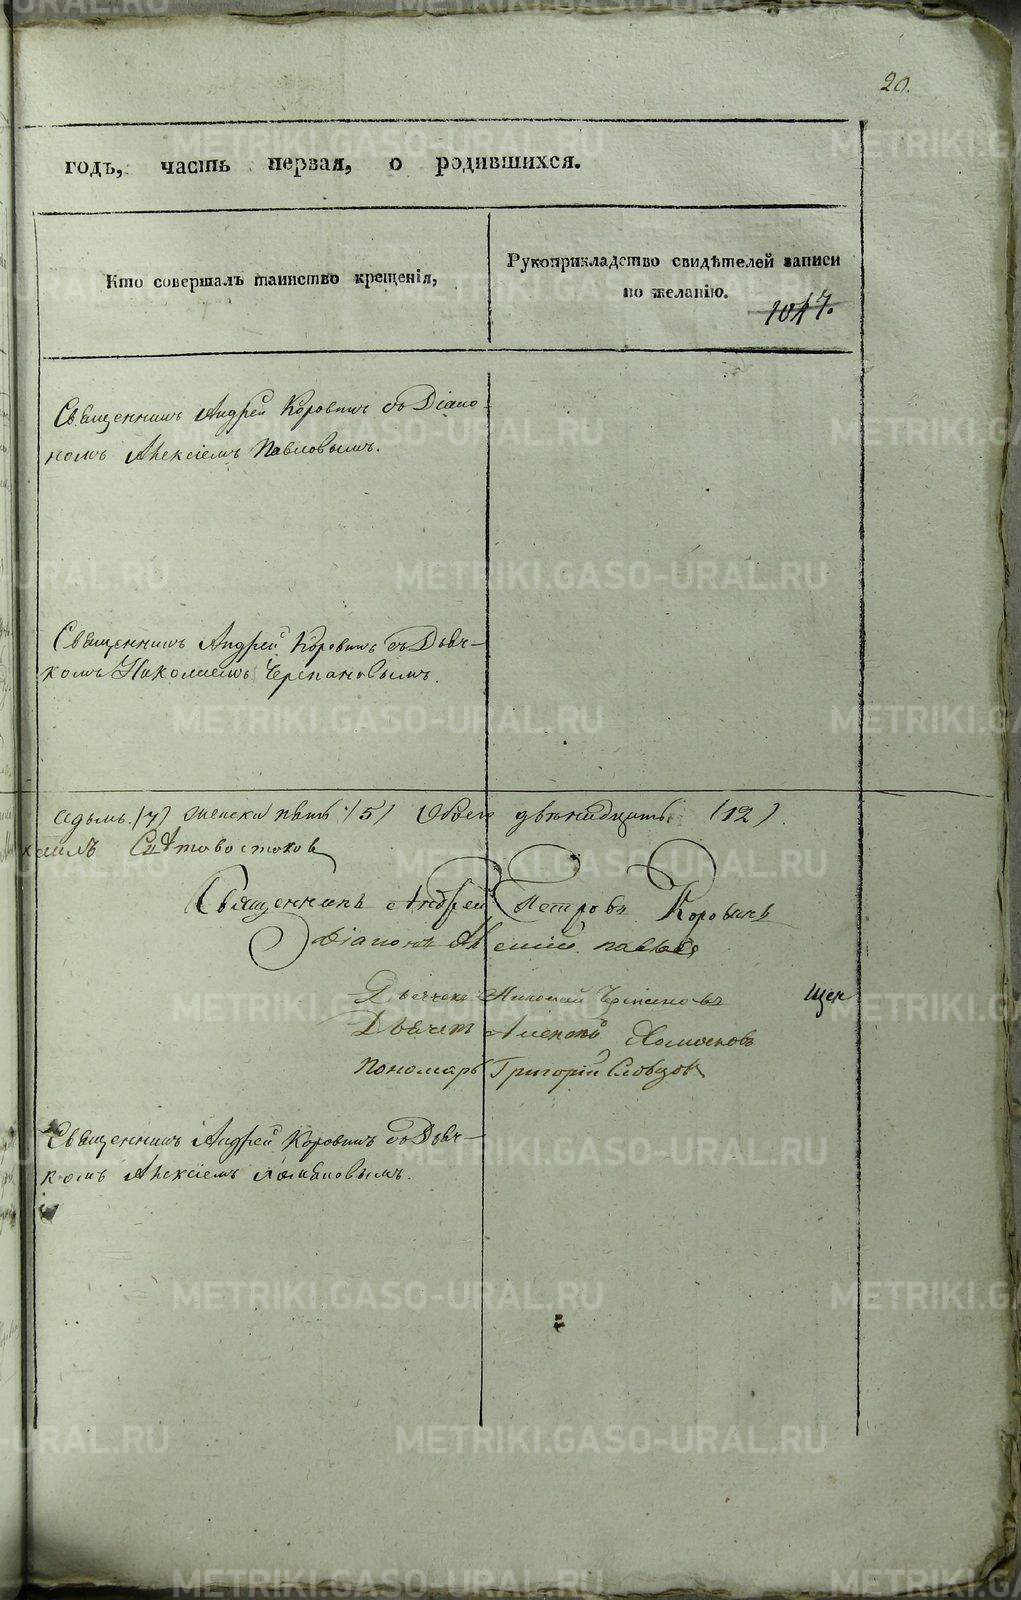 20.
годъ, часть первая, о родившихся.
Кто совершалъ таинство крещенія,
Рукоприкладство свидѣтелей записи
по желанію.
1047.
Священникъ Андрей Коровинъ съ Діако-
номъ Алексіемъ Павловымъ.
Священникъ Андрей Коровинъ съ Дьяч-
комъ Николаемъ Черпановымъ.
седьмь (7) женска пять (5) Обоего двѣнадцать (12)
Священникъ Андрей Петровъ Коровинъ
Діаконъ Алексій
Дьячекъ Николай Черпановъ
Дьячекъ Алексѣй
Пономарь Григорій Словцовъ
Священникъ Андрей Коровинъ съ Дьяч-
комъ Алексіемъ
METRIKI.GASO-URAL.RU